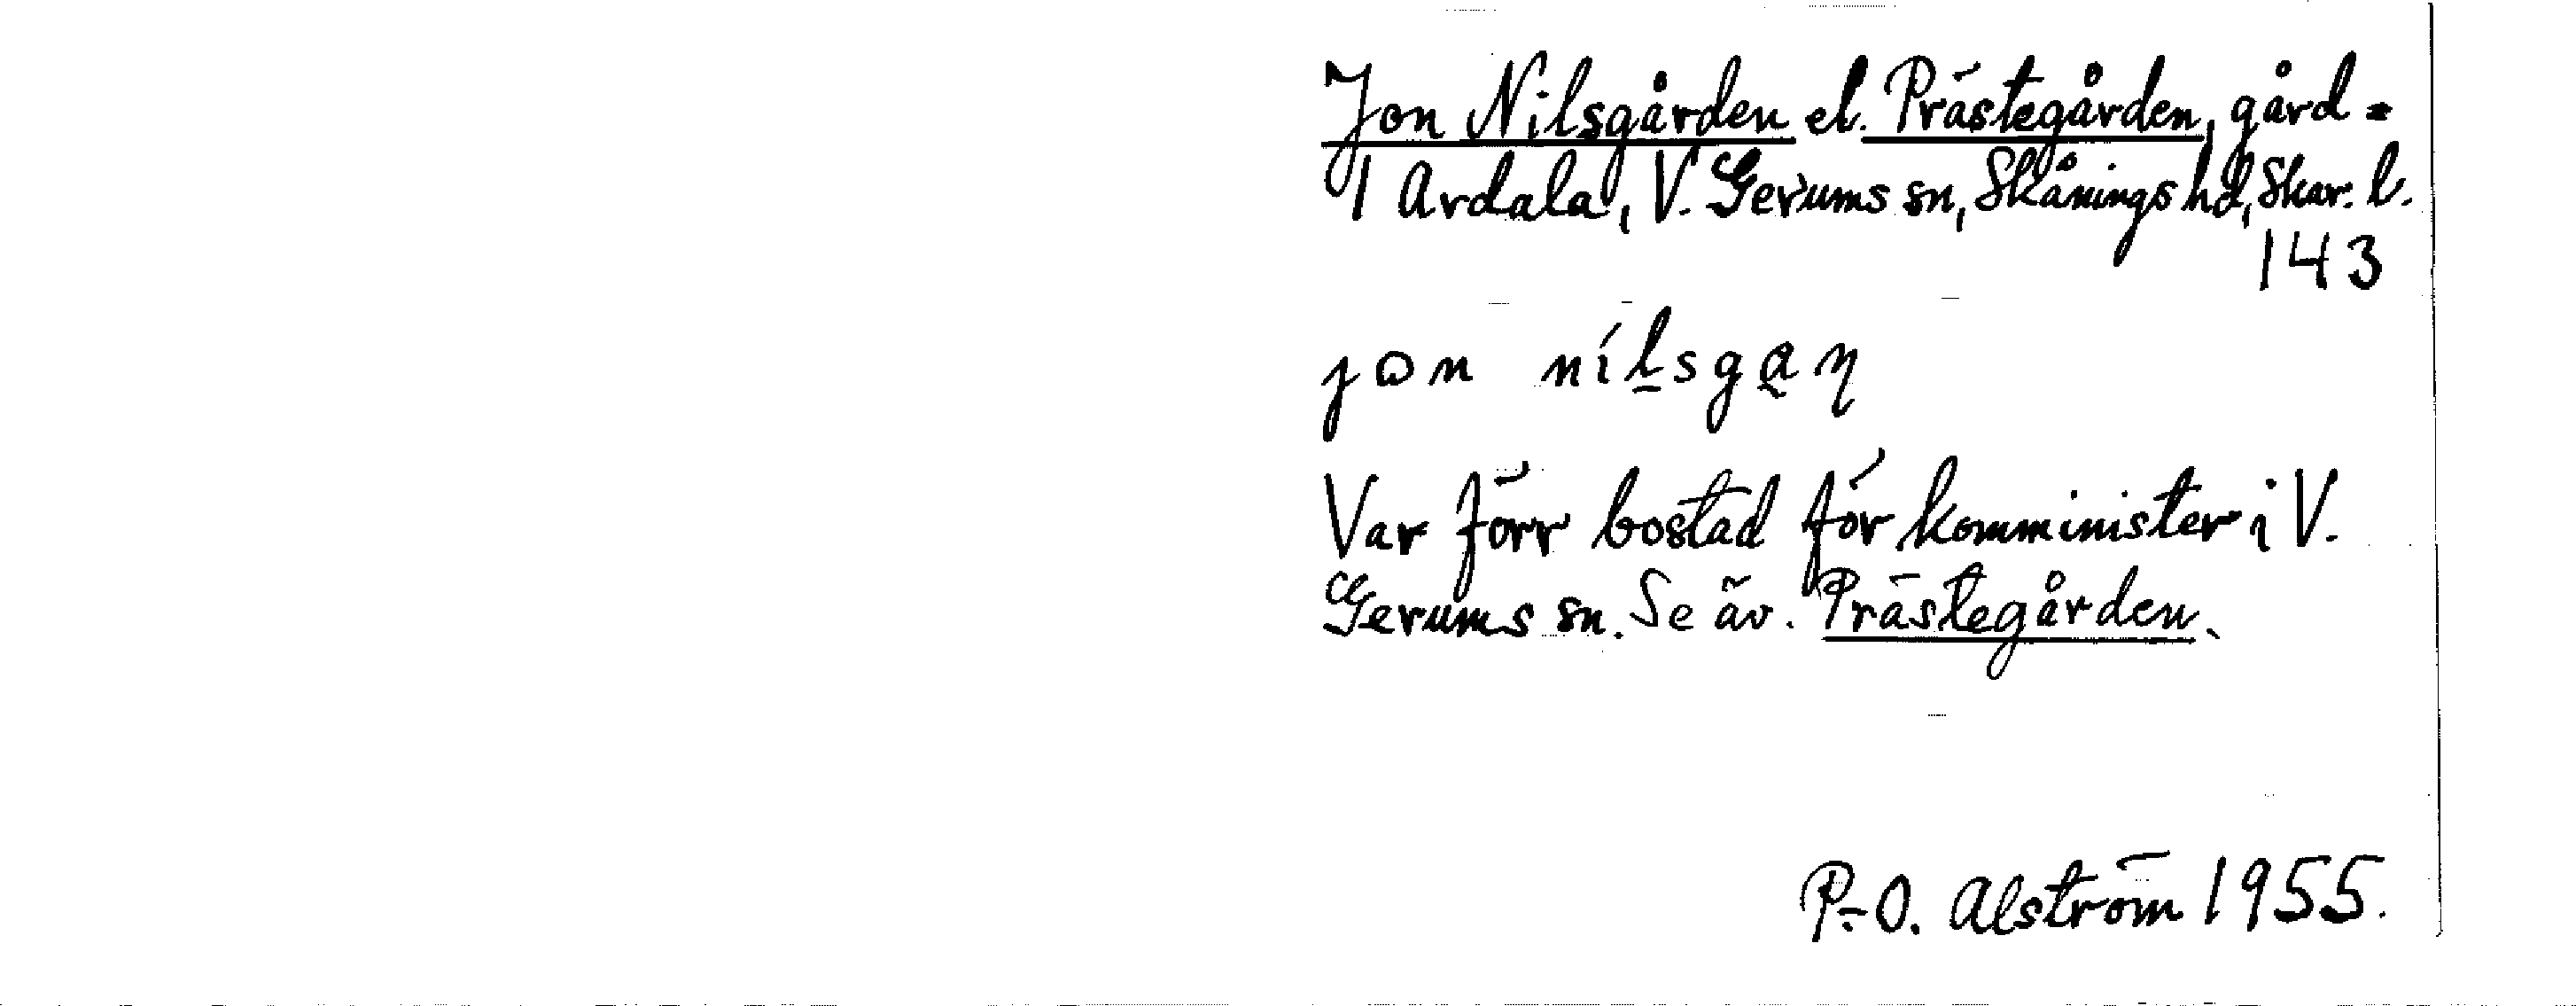 Jon Nilsgården el. Prästegården, gård =
1 Ardala, V. Gerums sn, Skånings hd, Skar. l.
143
jɷn nílsgaɳ
Var förr bostad för komminister i V.
Gerums sn. Se äv. Prästegården.
P.-O. Alström 1955.